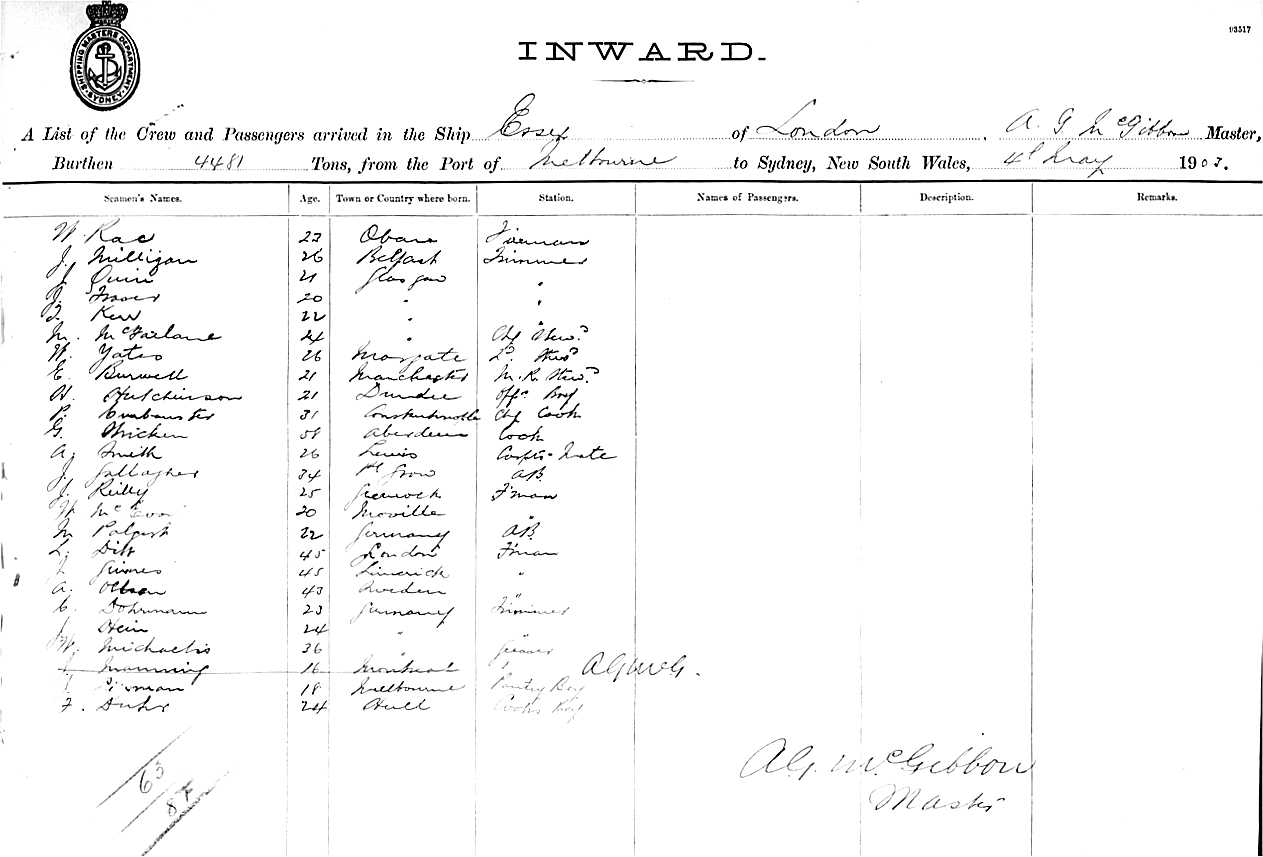 SHIPPING MASTERS DEPARTMENT SYDNEY
03517
INWARD.
A List of the Crew and Passengers arrived in the Ship Essex of London, A. G McGibbon Master,
Burthen 4481 Tons, from the Port of Melbourne to Sydney, New South Wales, 4th May 190
Seamen's Names. Age. Town or Country where born. Station. Names of Passengers. Description. Remarks.
W. Rae 23 Fireman
J. Milligan 26 Belfast Trimmer
J Quin 21 Glasgow "
J. Fraser 20 " "
Kerr 22 " "
M. McFarlane 24 " Chf Stewd
W. Yates 26 Margate 2d. Stewd
E. Burwell 21 Manchester M.R. Stewd
H. Hutchinson 21 Dundee Offs Boy
P. 31 Constantinople Chf Cook
G. 58 Aberdeen Cook
A. Smith 26 Lewis Carptrs Mate
J. Gallagher 34 AB.
J. Reilly 25 Greenock F'man
W. McEvoy 20 Moville "
M 22 Germany AB.
L. 45 London F'man
J. Grimes 45 Limerick "
A. Olsson 43 Sweden "
C. Dohrmann 23 Germany Trimmer
J. Hein 24 " "
W. Michaelis 36 " Greaser
Manning 16 Montreal A G McG.
18 Melbourne Pantry Boy
F. 24 Hull Cooks Boy
63
87
A G. McGibbon
Master